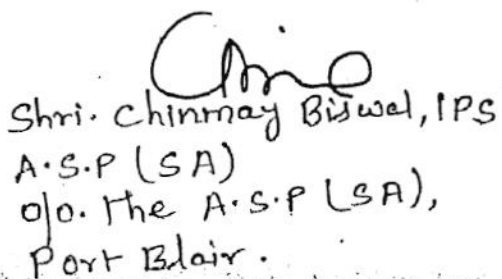 Shri. Chinmay Biswal, IPS
A.S.P (SA)
o/o. the A.S.P (SA),
Port Blair.